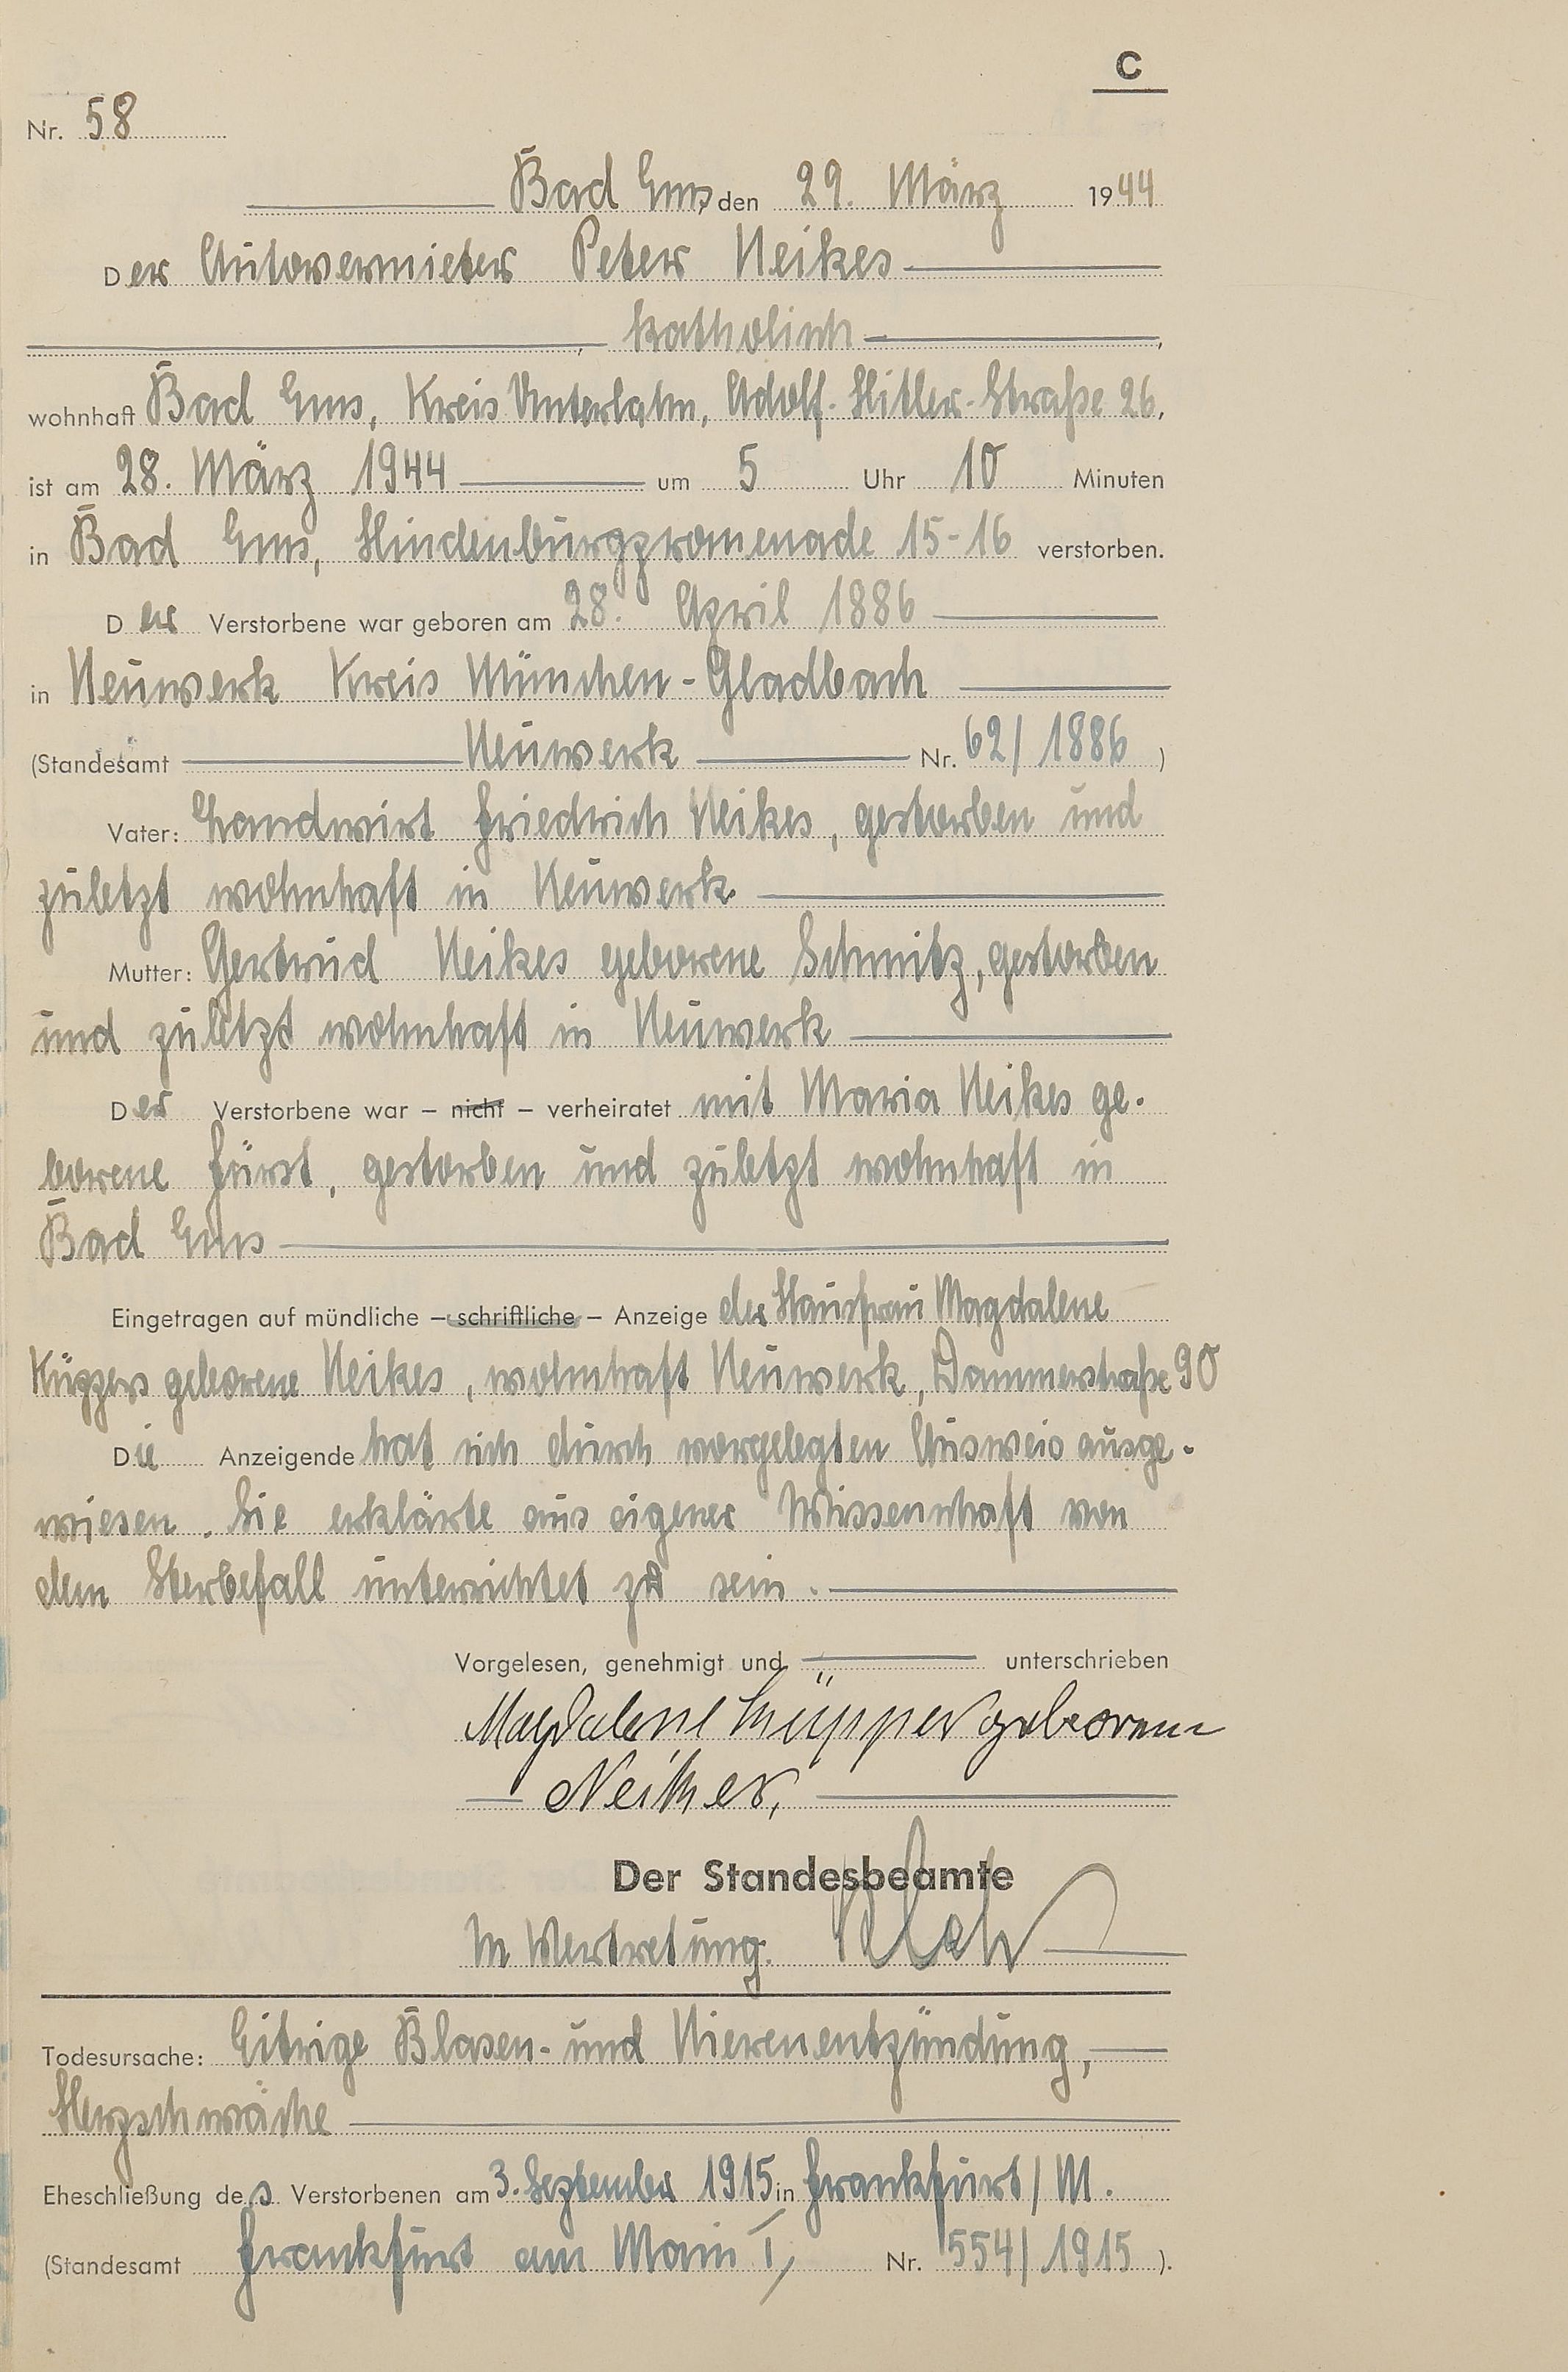 C
Nr. 58
Bad Ems, den 29. März 1944
Der Autovermieter Peter Neikes
, katholisch ,
wohnhaft Bad Ems, Kreis Unterlahn, Adolf-Hitler-Straße 26,
ist am 28. März 1944 um 5 Uhr 10 Minuten
in Bad Ems, Hindenburgpromenade 15-16 verstorben.
Der Verstorbene war geboren am 28. April 1886
in Neuwerk Kreis München-Gladbach
(Standesamt Neuwerk Nr. 62/1886 )
Vater: Landwirt Friedrich Neikes, gestorben und
zuletzt wohnhaft in Neuwerk
Mutter: Gertrud Neikes geborene Schmitz, gestorben
und zuletzt wohnhaft in Neuwerk
Der Verstorbene war – nicht – verheiratet mit Maria Neikes ge-
borene Fürst, gestorben und zuletzt wohnhaft in
Bad Ems
Eingetragen auf mündliche – schriftliche – Anzeige der Hausfrau Magdalene
Küppers geborene Neikes, wohnhaft Neuwerk, Dammerstraße 90
Die Anzeigende hat sich durch vorgelegten Ausweis ausge-
wiesen. Sie erklärte aus eigener Wissenschaft von
dem Sterbefall unterrichtet zu sein.
Vorgelesen, genehmigt und unterschrieben
Magdalene Küppers geborene
Neikes,
Der Standesbeamte
In Vertretung.
Todesursache: Eitrige Blasen- und Nierenentzündung,
Herzschwäche
Eheschließung des Verstorbenen am 3. September 1915 in Frankfurt/M.
(Standesamt Frankfurt am Main I, Nr. 554/1915 ).